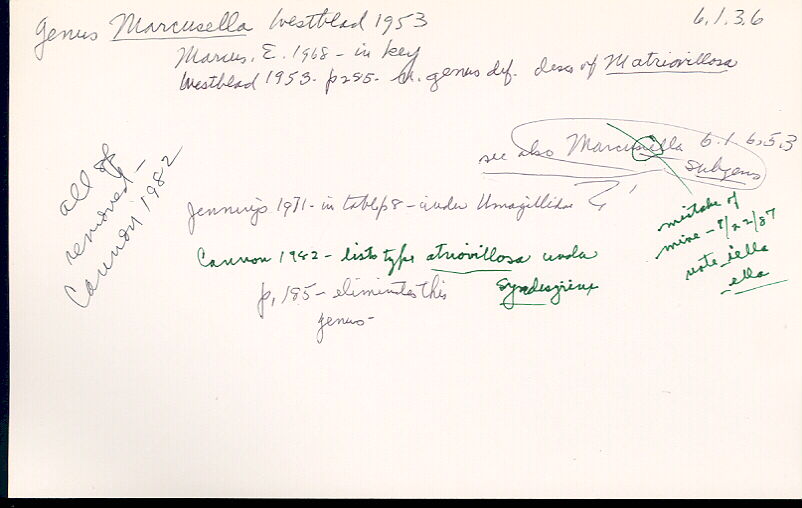 Genus Marcusella Westblad 1953 6.1.3.6
Marcus, E. 1968 - in key
Westblad 1953. p285. genus def. desc of M atriovillosa
see also Marcusiella 6.1.6.5.3
subgenus
all of
removed -
Cannon 1982
Jennings 1971 - in table p8 - under Umagillidae
mistake of
mine - 9/22/87
note iella
ella
Cannon 1982 - lists type atriovillosa under
Syndesyrinx
p, 185 - eliminates this
genus -